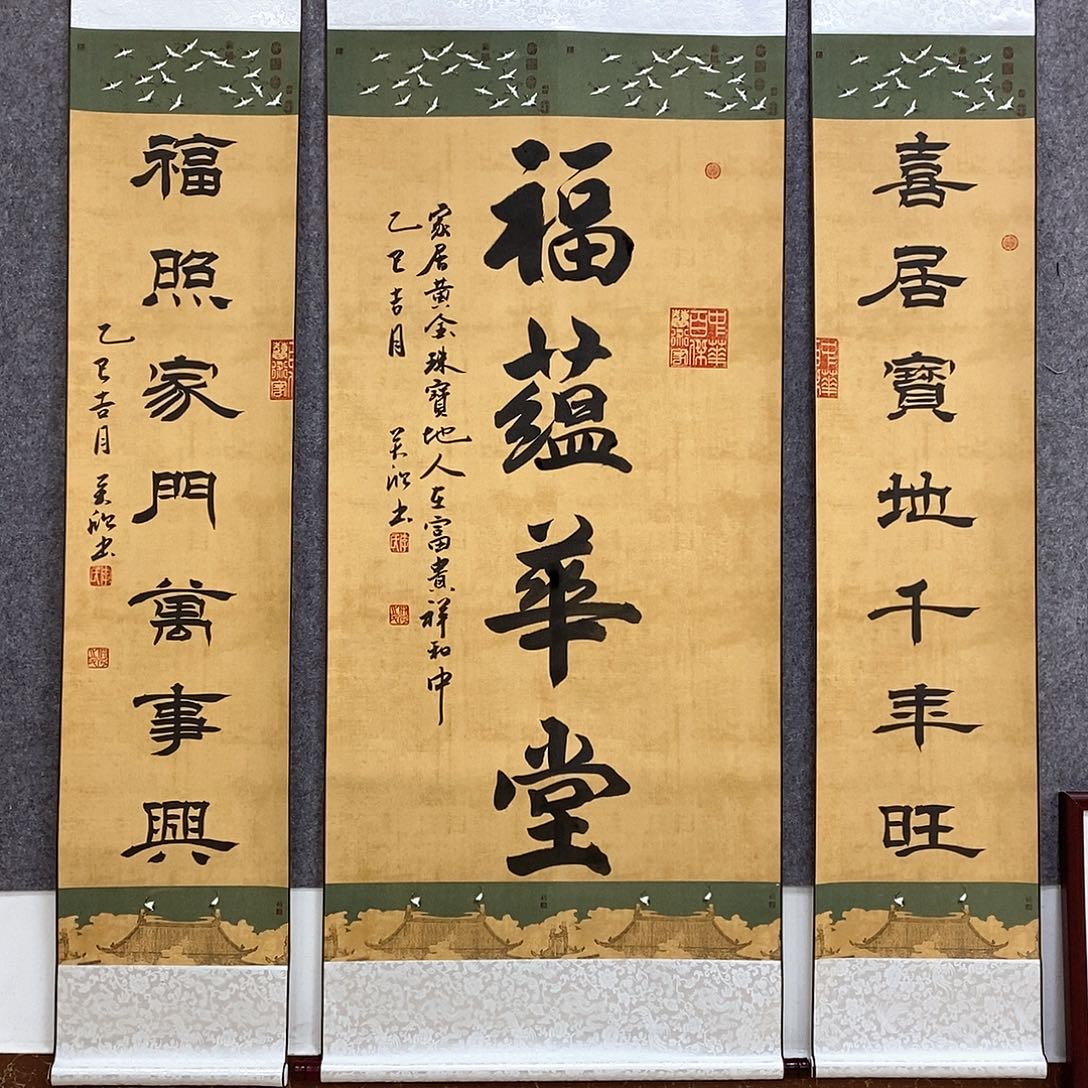 喜居寶地千年旺
福蘊華堂
家居黄金珠寶地人在富貴祥和中
乙巳吉月
福照家門萬事興
乙巳吉月
中華
百傑